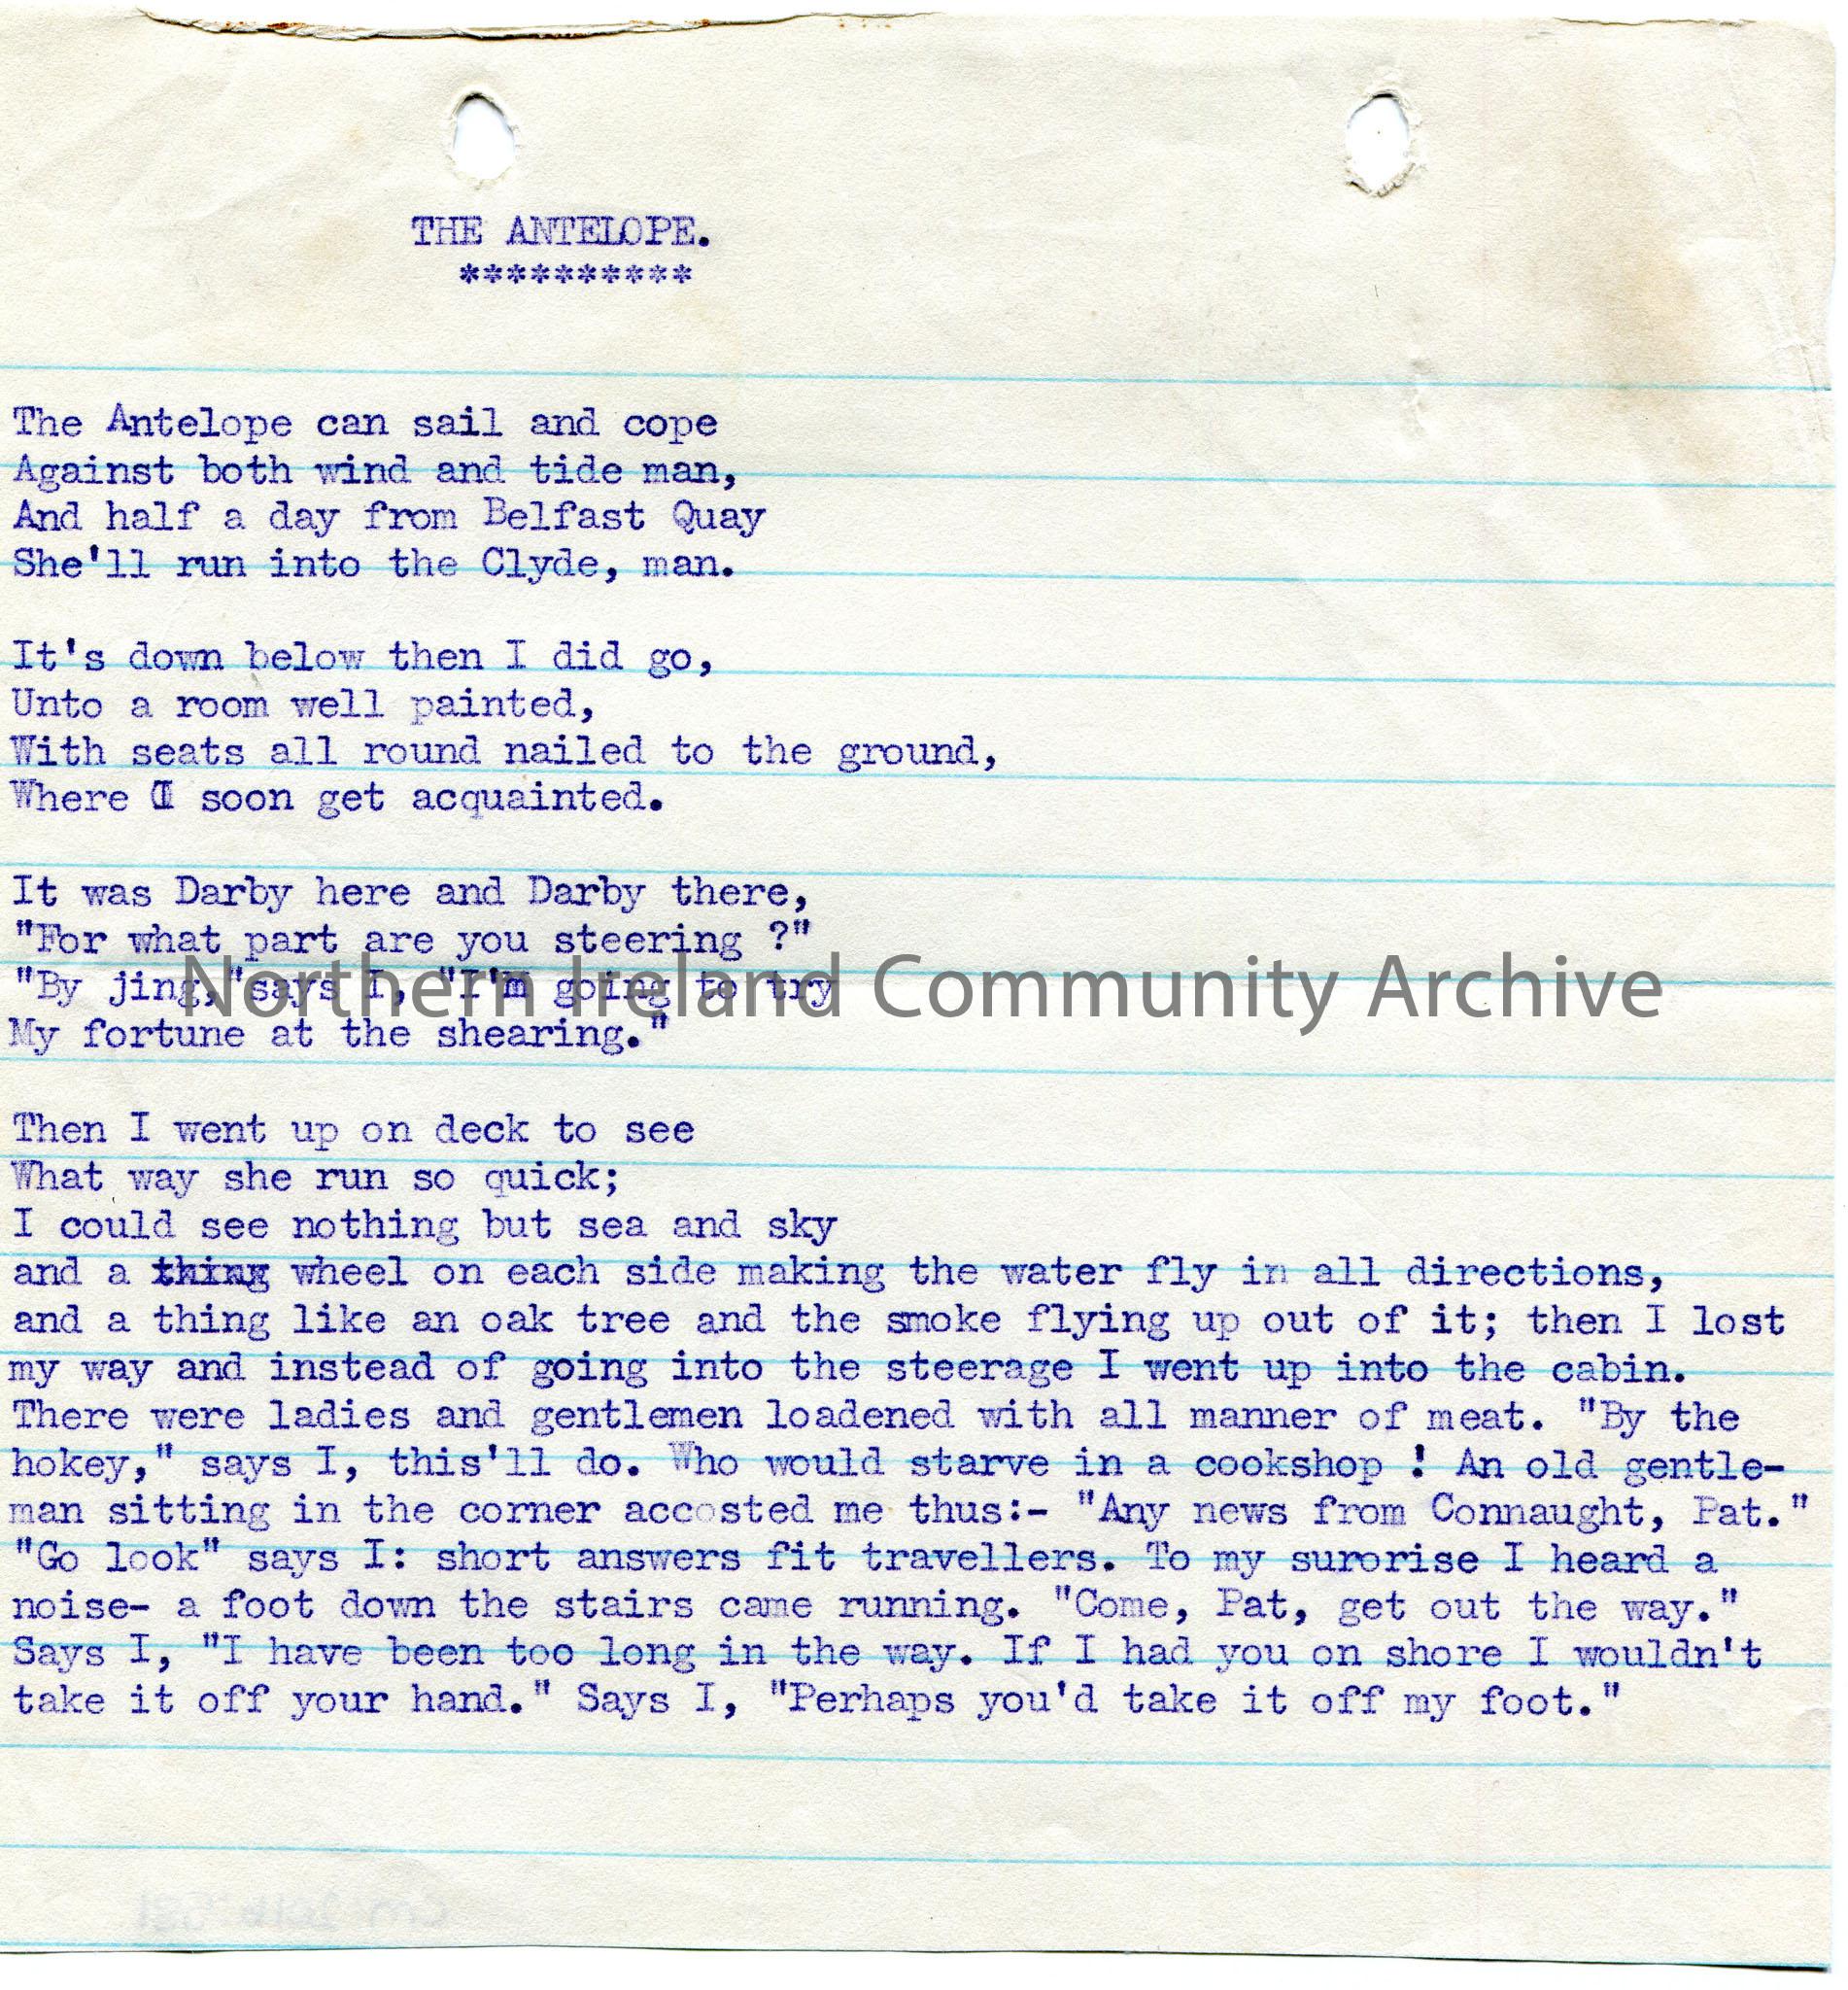 THE ANTELOPE.
**********
The Antelope can sail and cope
Against both wind and tide man,
And half a day from Belfast Quay
She'll run into the Clyde, man.
It's down below then I did go,
Unto a room well painted,
With seats all round nailed to the ground,
Where I soon get acquainted.
It was Darby here and Darby there,
"For what part are you steering ?"
"By jing,"says I, "I'm going to try
My fortune at the shearing."
Northern Ireland Community Archive
Then I went up on deck to see
What way she run so quick;
I could see nothing but sea and sky
and a thing wheel on each side making the water fly in all directions,
and a thing like an oak tree and the smoke flying up out of it; then I lost
my way and instead of going into the steerage I went up into the cabin.
There were ladies and gentlemen loadened with all manner of meat. "By the
hokey," says I, this'll do. Who would starve in a cookshop ! An old gentle-
man sitting in the corner accosted me thus:- "Any news from Connaught, Pat."
"Go look" says I: short answers fit travellers. To my surorise I heard a
noise- a foot down the stairs came running. "Come, Pat, get out the way."
Says I, "I have been too long in the way. If I had you on shore I wouldn't
take it off your hand." Says I, "Perhaps you'd take it off my foot."